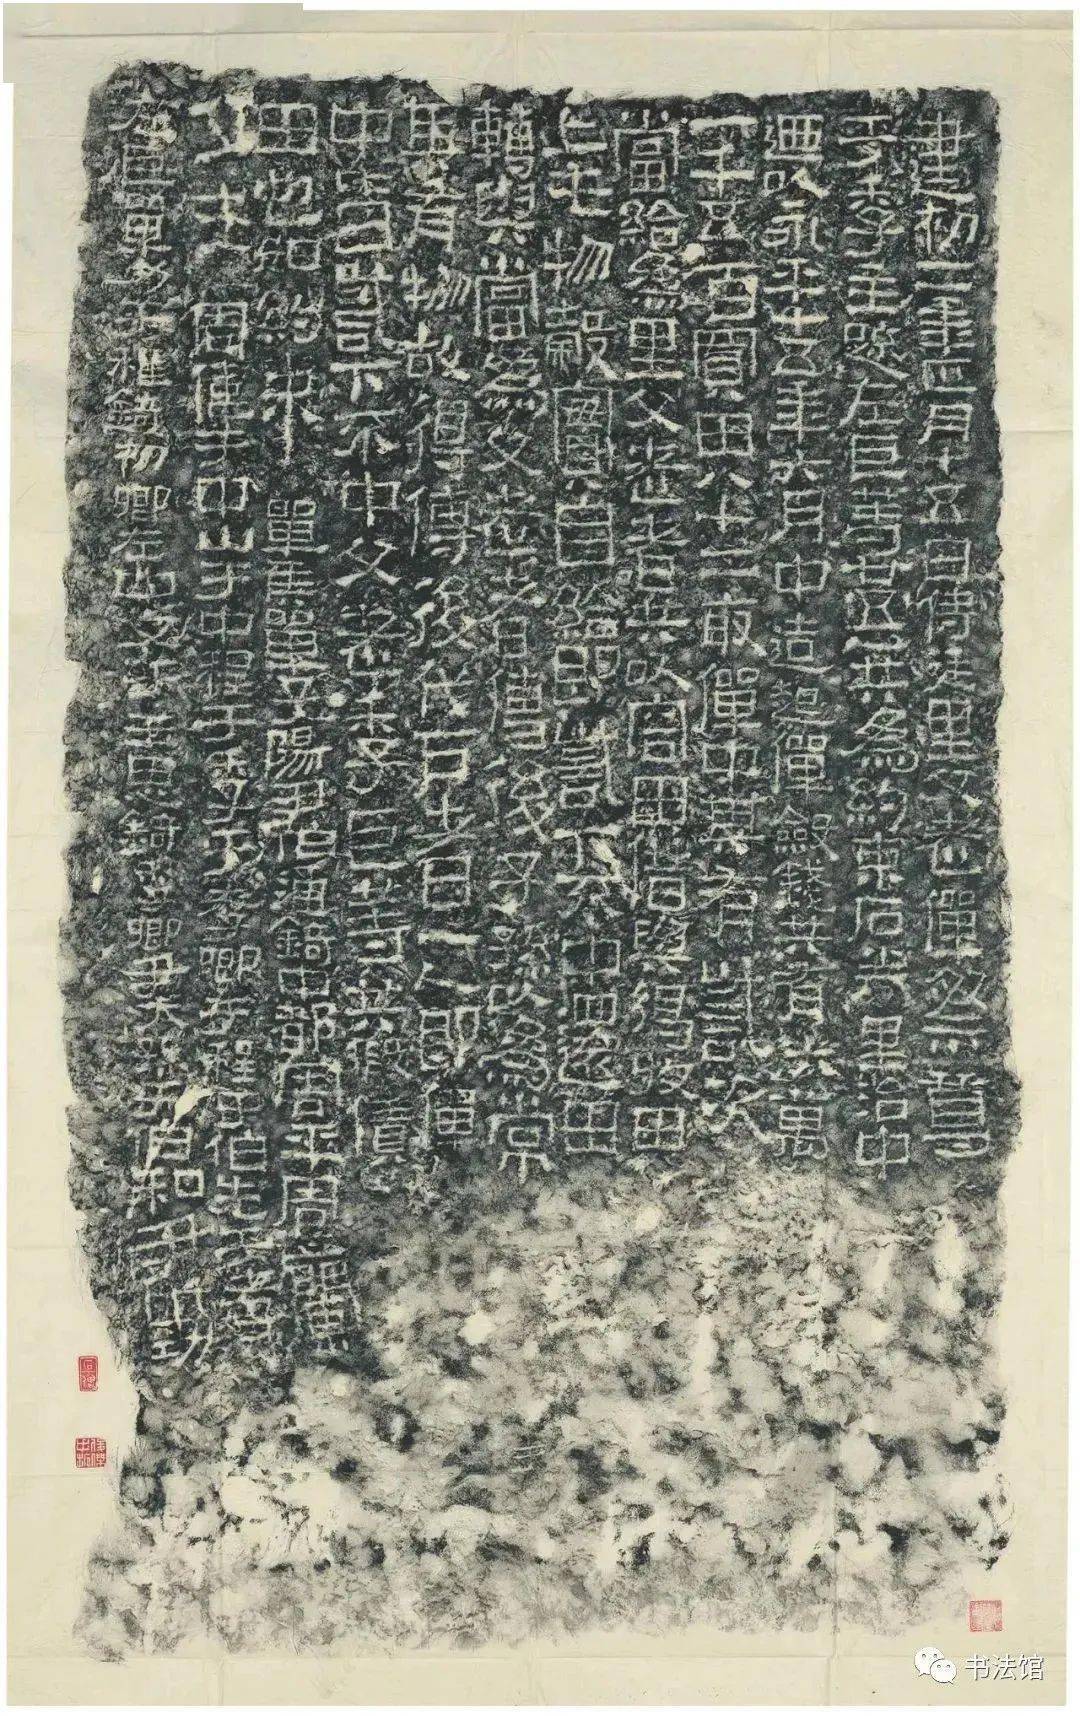 建初二年正月十五日侍廷里父老僤祭尊
于季主疏左巨等廿五人共為約束石券里治中
迺以永平十五年六月中造起僤斂錢共有六萬
一千五百買田八十二畝僤中其有訾次
當給為里父老者共以客田借與得收田
上毛物穀實自給即訾下不中還田
轉與當為父老者傳後子孫以為常
其有物故得傳後代戶者一人即僤
中皆訾下不中父老季巨等共假賃
田它如約束單侯單子陽尹伯通錡中都周平周蘭
周偉于中山于中程于季于孝卿于程于伯先于孝
左巨單力于稚錡初卿左中文于王思錡季卿尹太孫于伯和尹明功
书法馆